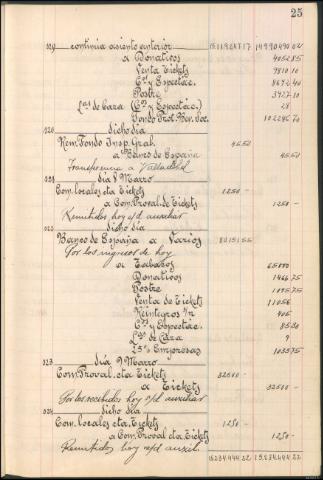 25
continúa asiento anterior 14990490 02
a Donativos 4052 85
Venta Tickets 9810 10
Cos y Espectác. 8672 40
Postre 3727 10
Las de Caza (Cos y Espectác.) 28
Fondo Prot. Ben. Soc.
dicho día
Rem. Fondo Insp. Gral. 45 50
a Banco de España 45 50
Transferencia a Valladolid
día 8 Marzo
Com. locales cta Tickets 1250 -
a Com. Proval. de Tickets 1250 -
Remitidos hoy s/d auxiliar
dicho día
Banco de España a Varios
Por los ingresos de hoy
a Tabacos
Donativos 1466 75
Postre 1095 75
Venta de Tickets 11056
Reintegros
Cos y Espectác. 8520
Las de Caza 9
25% Empresas 10357 5
323
día 9 Marzo
Com. Proval. cta Tickets 32500 -
a Tickets 32500 -
Por los recibidos hoy s/d auxiliar
324
dicho día
Com. locales cta. Tickets 1250 -
a Com. Proval cta Tickets 1250 -
Remitidos hoy s/d auxil.
15.234.444 22 15.234.444 22